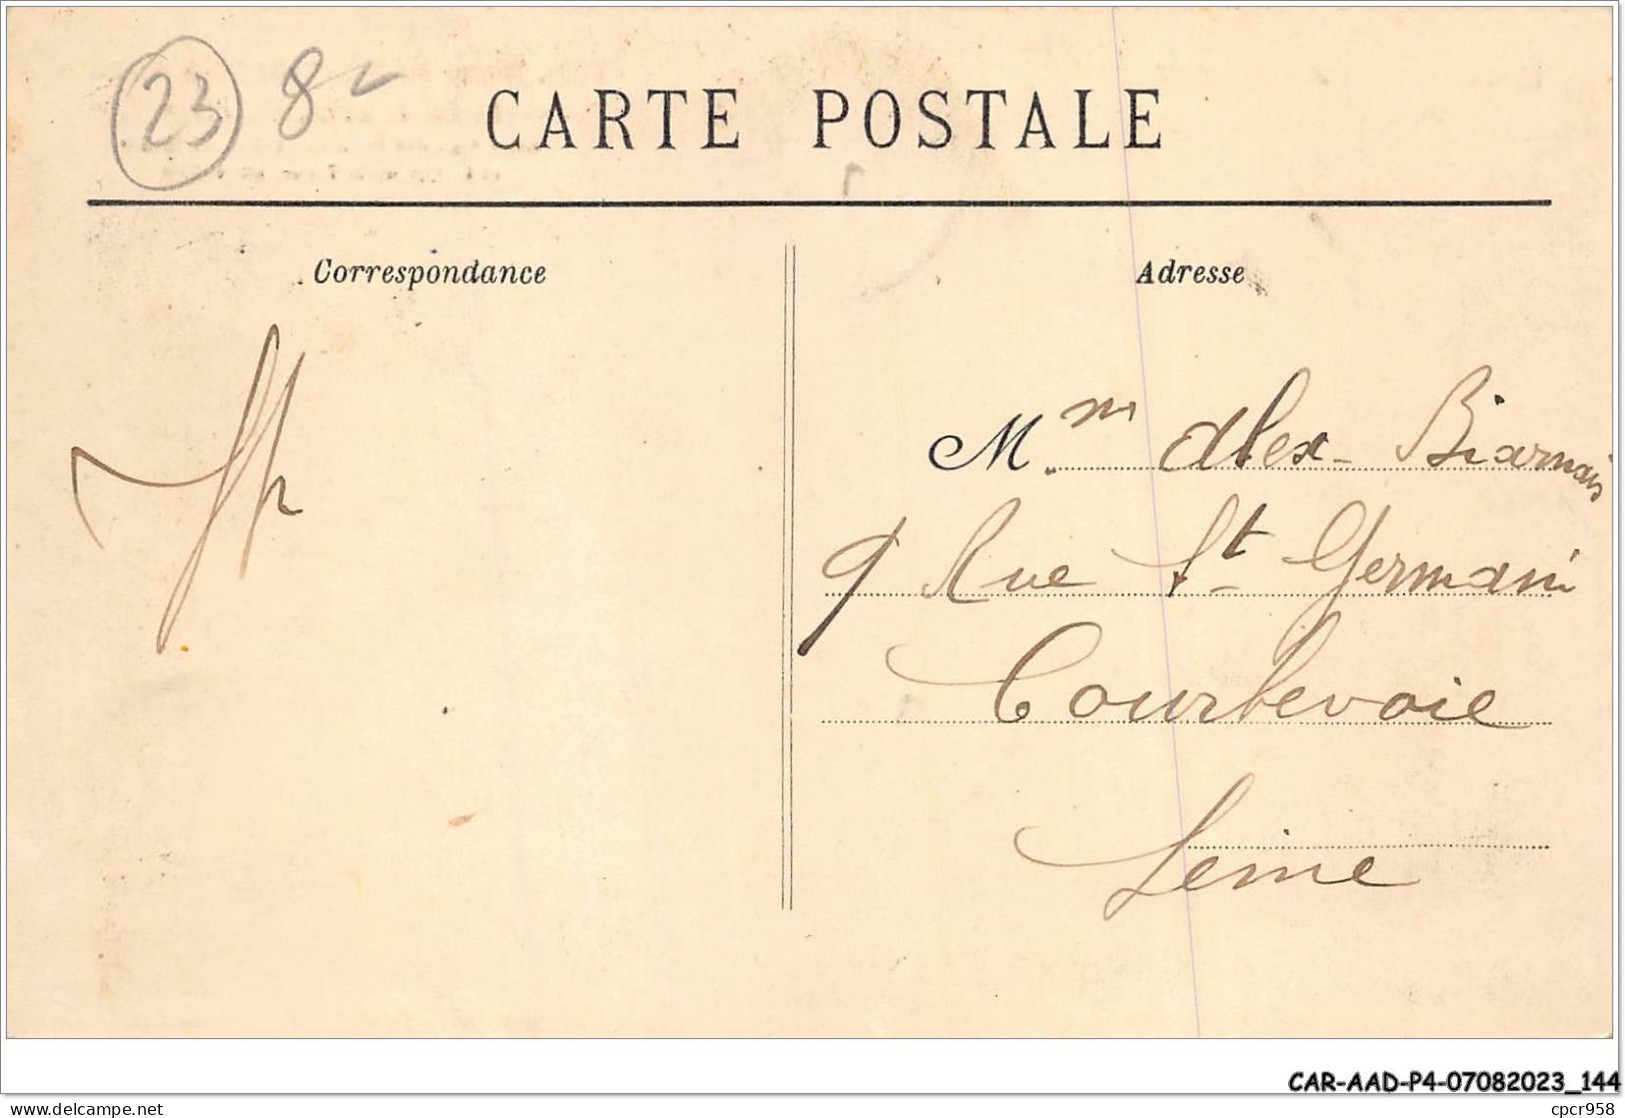 23 8
CARTE POSTALE
Correspondance
Adresse
Mme Alex Biarnais
9 Rue St Germain
Courbevoie
Seine
CAR-AAD-P4-07082023_144
cpcr958